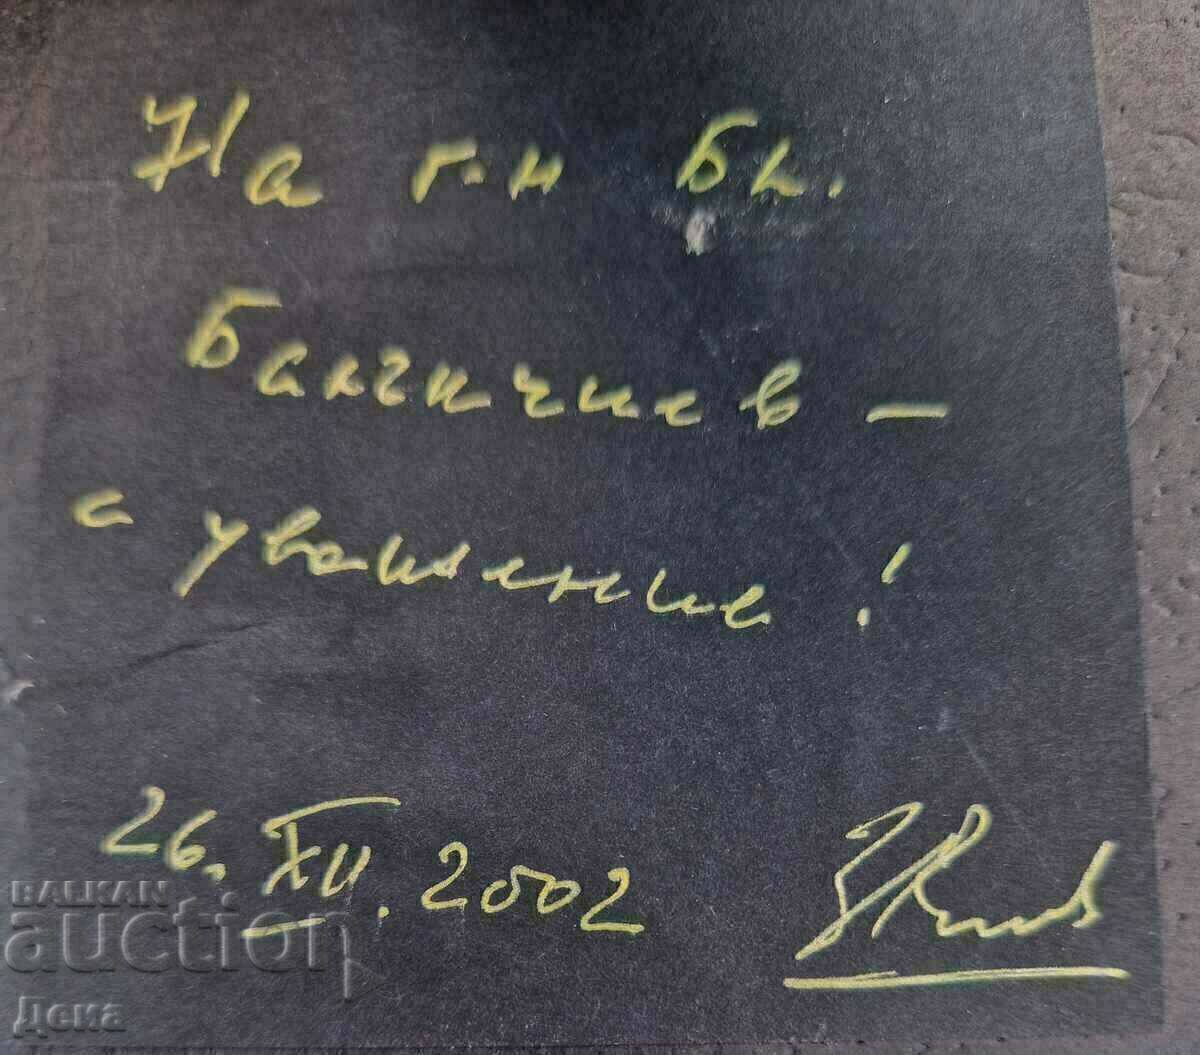 На г-н Бл.
Балгичиев –
с уважение!
26.XII.2002
BALKAN
auction
Дена